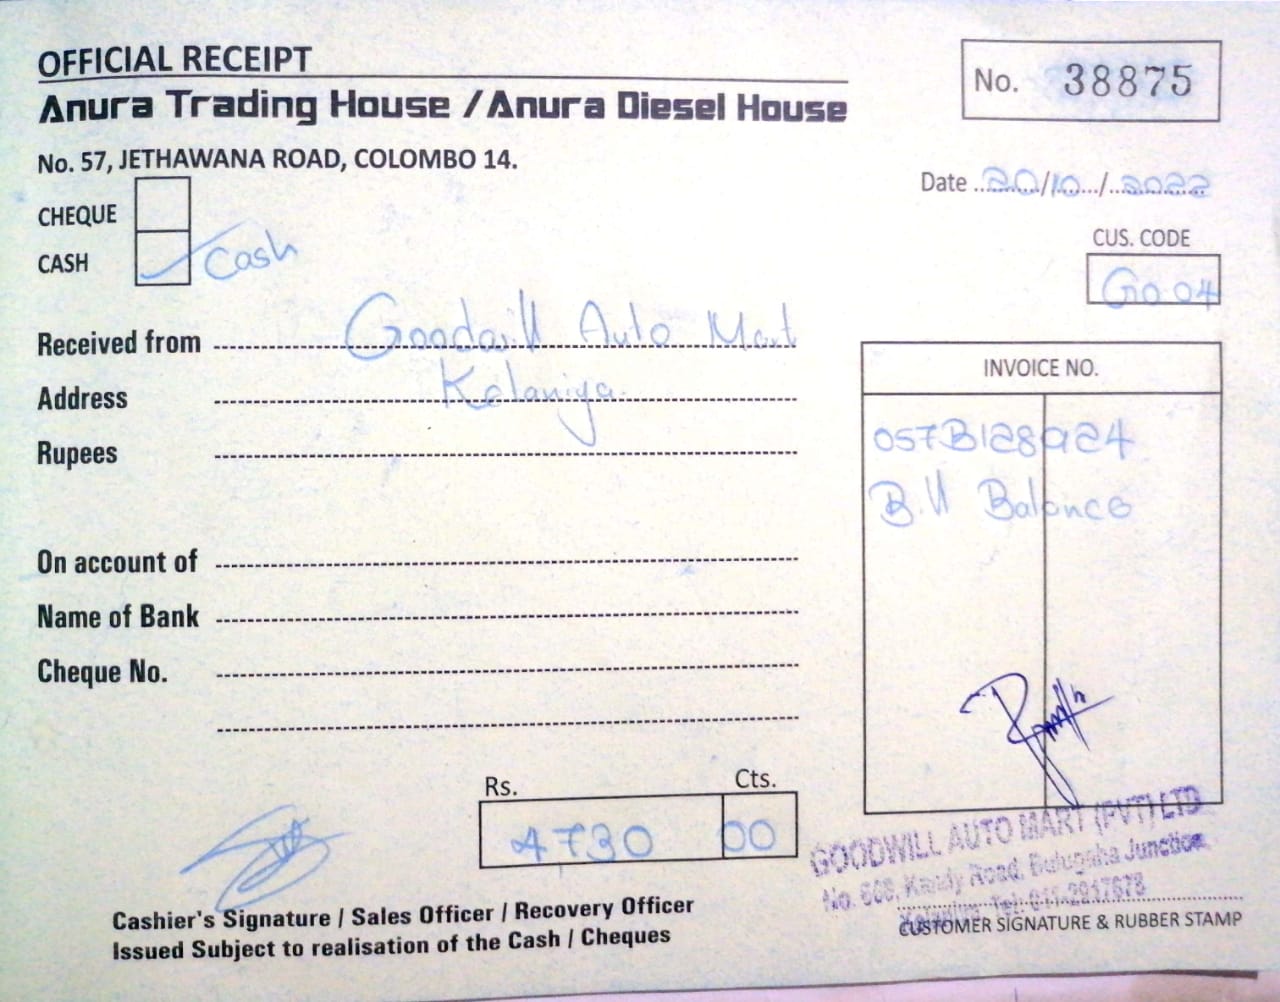 OFFICIAL RECEIPT
Anura Trading House / Anura Diesel House
No. 57, JETHAWANA ROAD, COLOMBO 14.
No. 38875
Date 20/10/2022
CHEQUE
CASH Cash
CUS. CODE
Go 04
Received from Goodwill Auto Mart
Address Kelaniya.
Rupees
On account of
Name of Bank
Cheque No.
INVOICE NO.
057B128924
Balance
Rs. Cts.
4730 00
GOODWILL AUTO MART (PVT) LTD
Kandy Road, Bulugaha Junction,
Kelaniya. Tel: 011-2917678
Cashier's Signature / Sales Officer / Recovery Officer
Issued Subject to realisation of the Cash / Cheques
CUSTOMER SIGNATURE & RUBBER STAMP